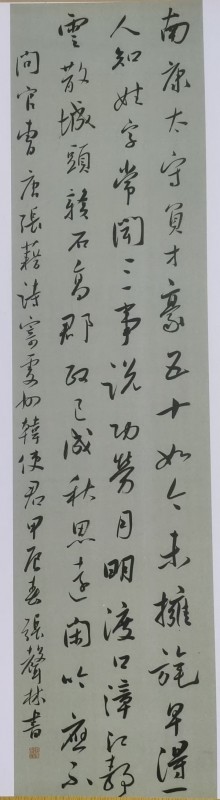 南康太守負才豪五十如今未擁旄早得一
人知姓字常聞三事說功勞月明渡口漳江靜
雲散城頭贛石高郡政已成秋思遠閑吟應不
問官曹唐張籍詩寄虔州韓使君甲辰春張林書